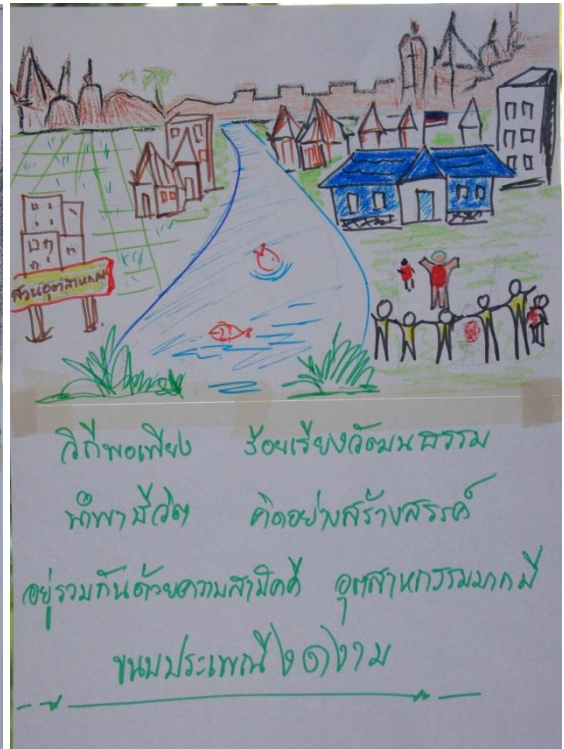 สวนอุตสาหกรรม
วิถีพอเพียง ร้อยเรียงวัฒนธรรม
นำพาชีวิต คิดอย่างสร้างสรรค์
อยู่รวมกันด้วยความสามัคคี อุตสาหกรรมมากมี
ขนบประเพณีงดงาม